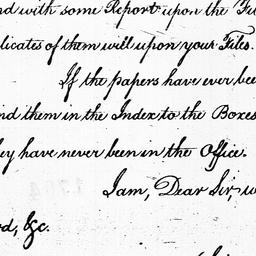 nd with some Report upon the Fil
plicates of them will upon your Files.
If the papers have ever bee
ind them in the Index to the Boxes
hey have never been in the Office.
I am, Dear Sir, w
rd, &c.